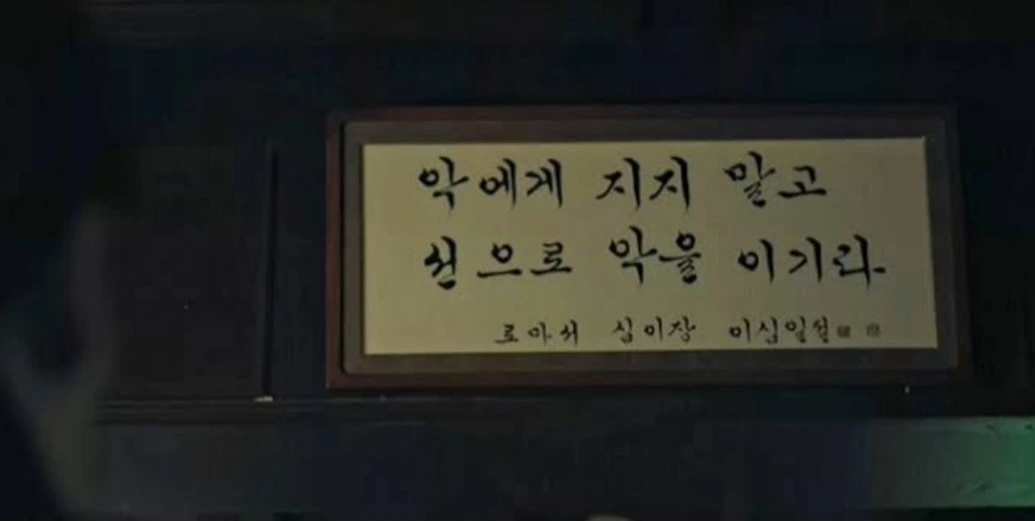 악에게 지지 말고
선으로 악을 이기라
로마서 십이장 이십일절